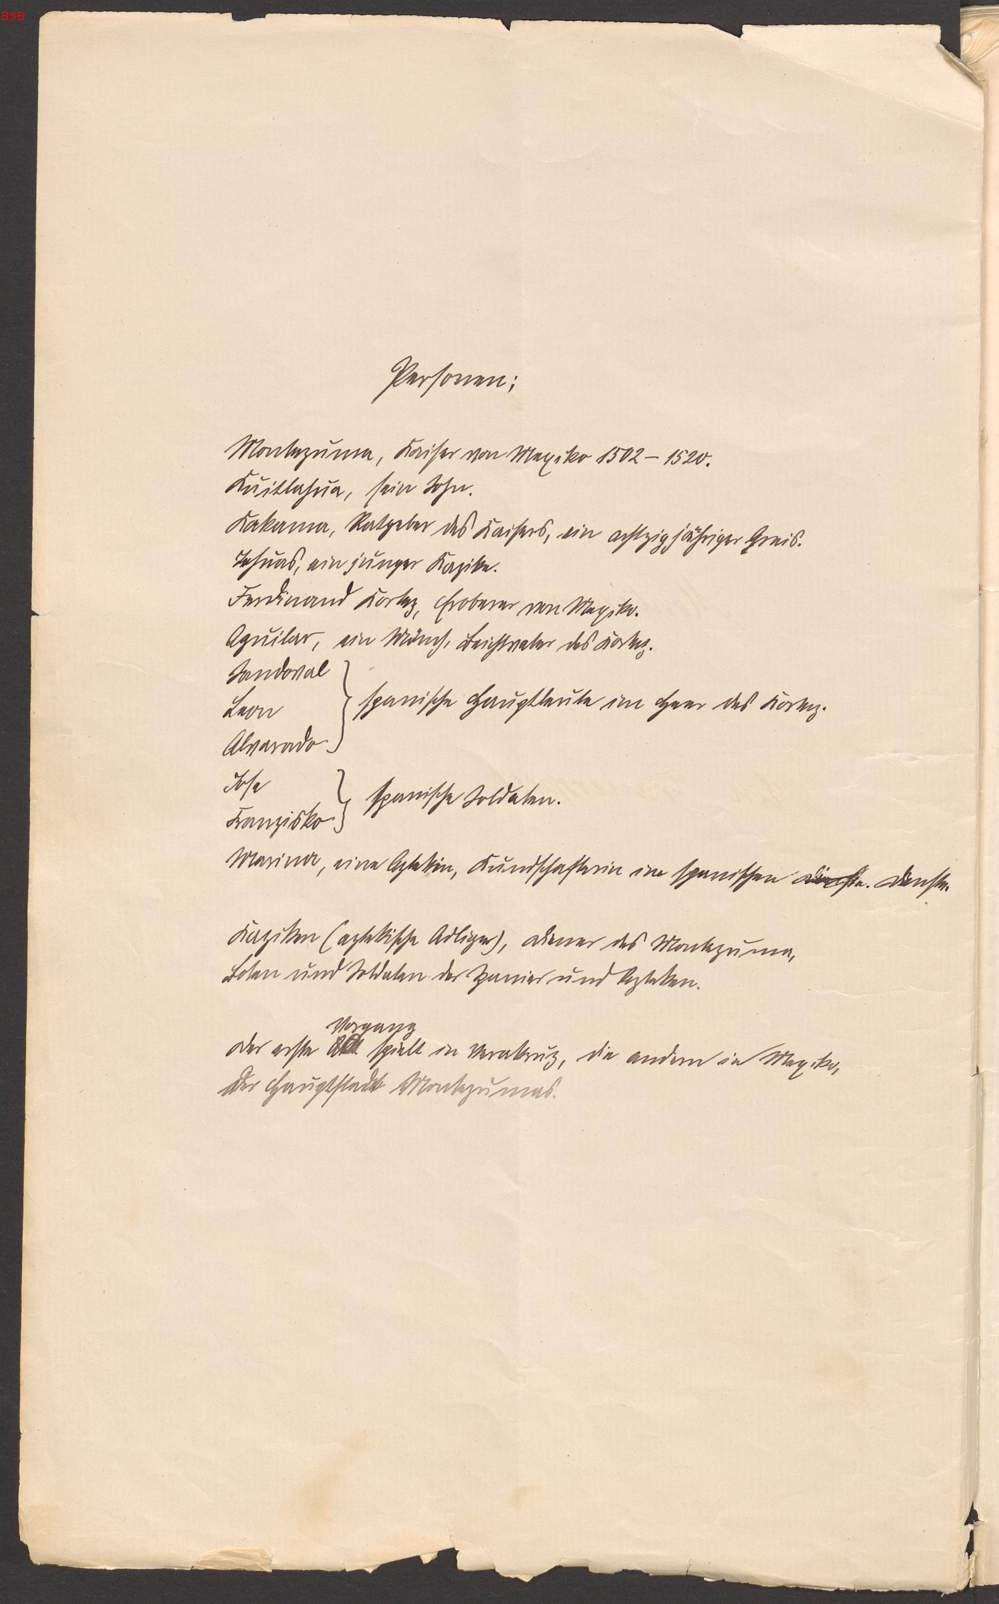 858
Personen:
Montezuma, Kaiser von Mexiko 1502 – 1520.
Kuitlahua, sein Sohn.
Kakama, Ratgeber des Kaisers, ein achtzigjähriger Greis.
ein junger Kazike.
Ferdinand Kortez, Eroberer von Mexiko.
Aguilar, ein Mönch, Beichtvater des Kortez.
Sandoval
Leon
Alvarado
spanische Hauptleute im Heer des Kortez.
Jose
Franzisko
spanische Soldaten.
Marina, eine Aztekin, Kundschafterin in spanischen Diensten.
Kaziken (aztekische Adlige), Diener des Montezuma,
Boten und Soldaten der Spanier und Azteken.
Vorgang
Der erste Akt spielt in Verakruz, die andern in Mexiko,
der Hauptstadt Montezumas.